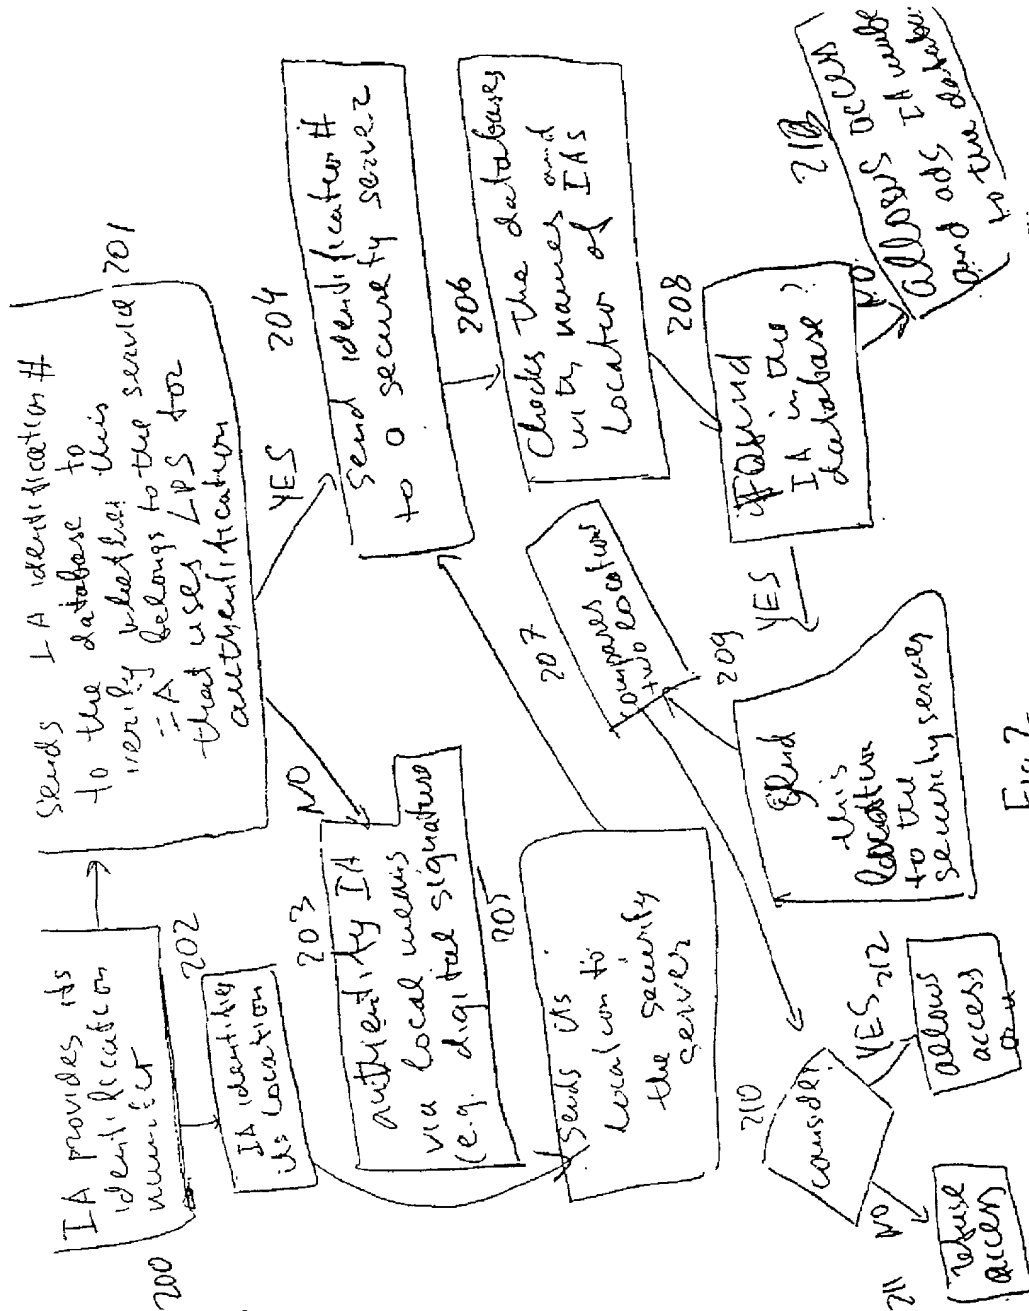 200
IA provides its
identification
number
Sends IA identification #
to the database to
verify whether this
IA belongs to the service
that uses LPS for
authentification
201
202
IA identifies
its location
NO
YES
203
authentify IA
via local means
(e.g. digital signature)
204
Send identification #
to a security server
205
Sends its
location to
the security
server
206
Checks the databases
with names and
location of IAS
207
compares
two locations
208
Found
IA in the
database?
NO
YES
209
Send
this
location
to the
security server
210
NO
YES
211
refuse
access
212
allows
access
213
allows access
and ads IA
to the